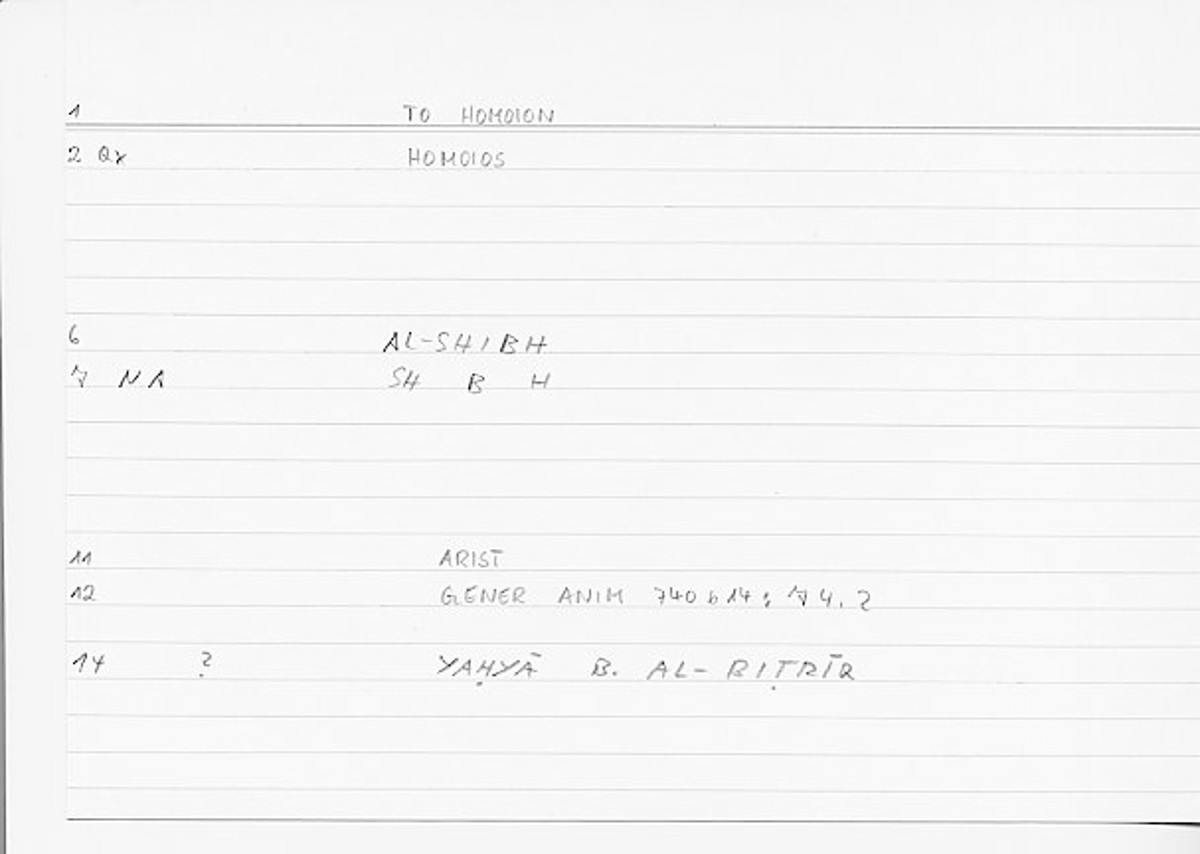 1 TO HOMOION
2 Qx HOMOIOS
6 AL-SHIBH
7 NA SH B H
11 ARIST
12 GENER ANIM 740 b 14 ; 74.2
14 ? YAḤYĀ B. AL-BIṬRĪQ